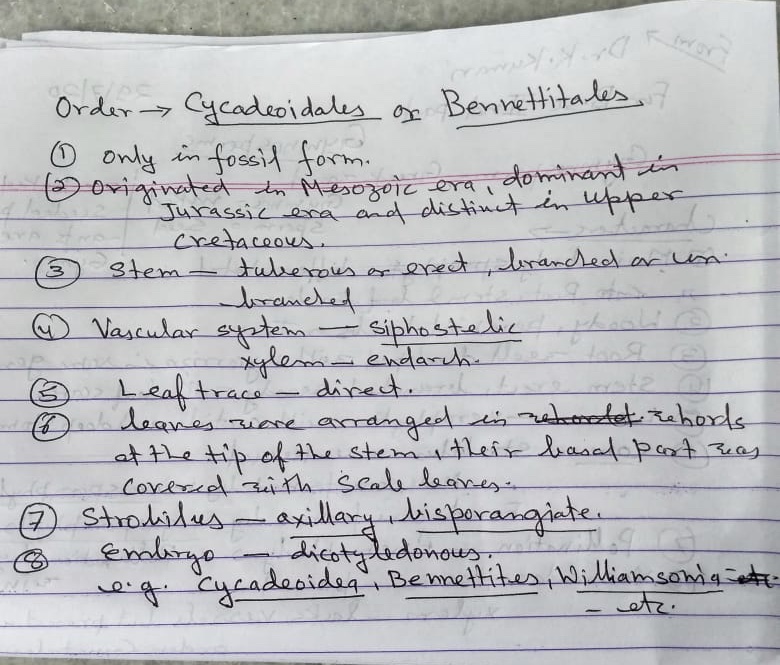 Order → Cycadeoidales or Bennettitales.
① Only in fossil form.
② Originated in Mesozoic era, dominant in
Jurassic era and distinct in upper
Cretaceous.
③ Stem – tuberous or erect, branched or un-
branched
④ Vascular system – siphostelic
xylem – endarch.
⑤ Leaf trace – direct.
⑥ leaves were arranged in whords
at the tip of the stem, their basal part was
covered with scale leaves.
⑦ Strobilus – axillary, bisporangiate.
⑧ Embryo – dicotyledonous.
e.g. Cycadeoidea, Bennettites, Williamsonia etc.
– etc.